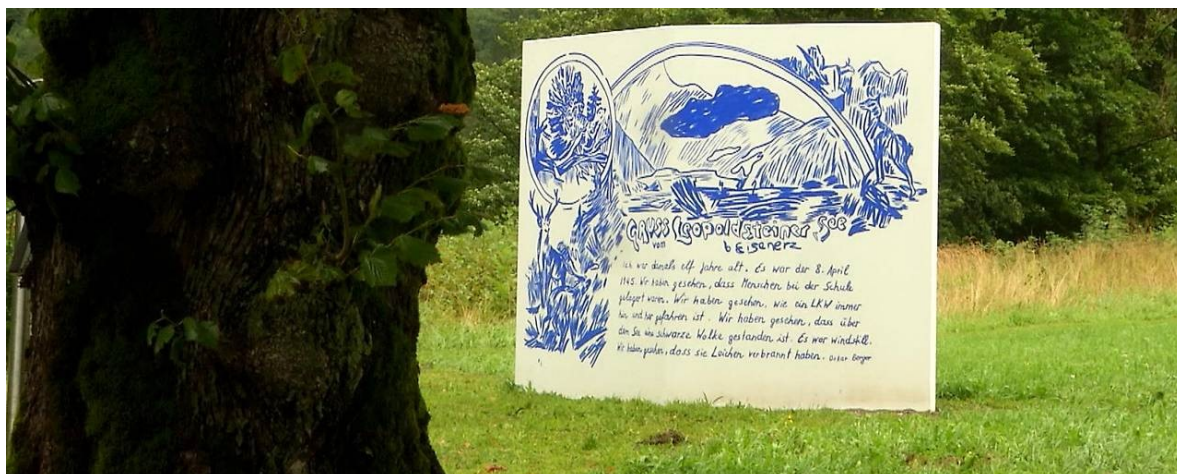 GRUSS Leopoldsteiner See
vom b Eisenerz
Ich war damals elf Jahre alt. Es war der 8. April
1945. Wir haben gesehen, dass Menschen bei der Schule
gelagert waren. Wir haben gesehen, wie ein LKW immer
hin und her gefahren ist. Wir haben gesehen, dass über
dem See eine schwarze Wolke gestanden ist. Es war windstill.
Wir haben gesehen, dass sie Leichen verbrannt haben. Oskar Berger